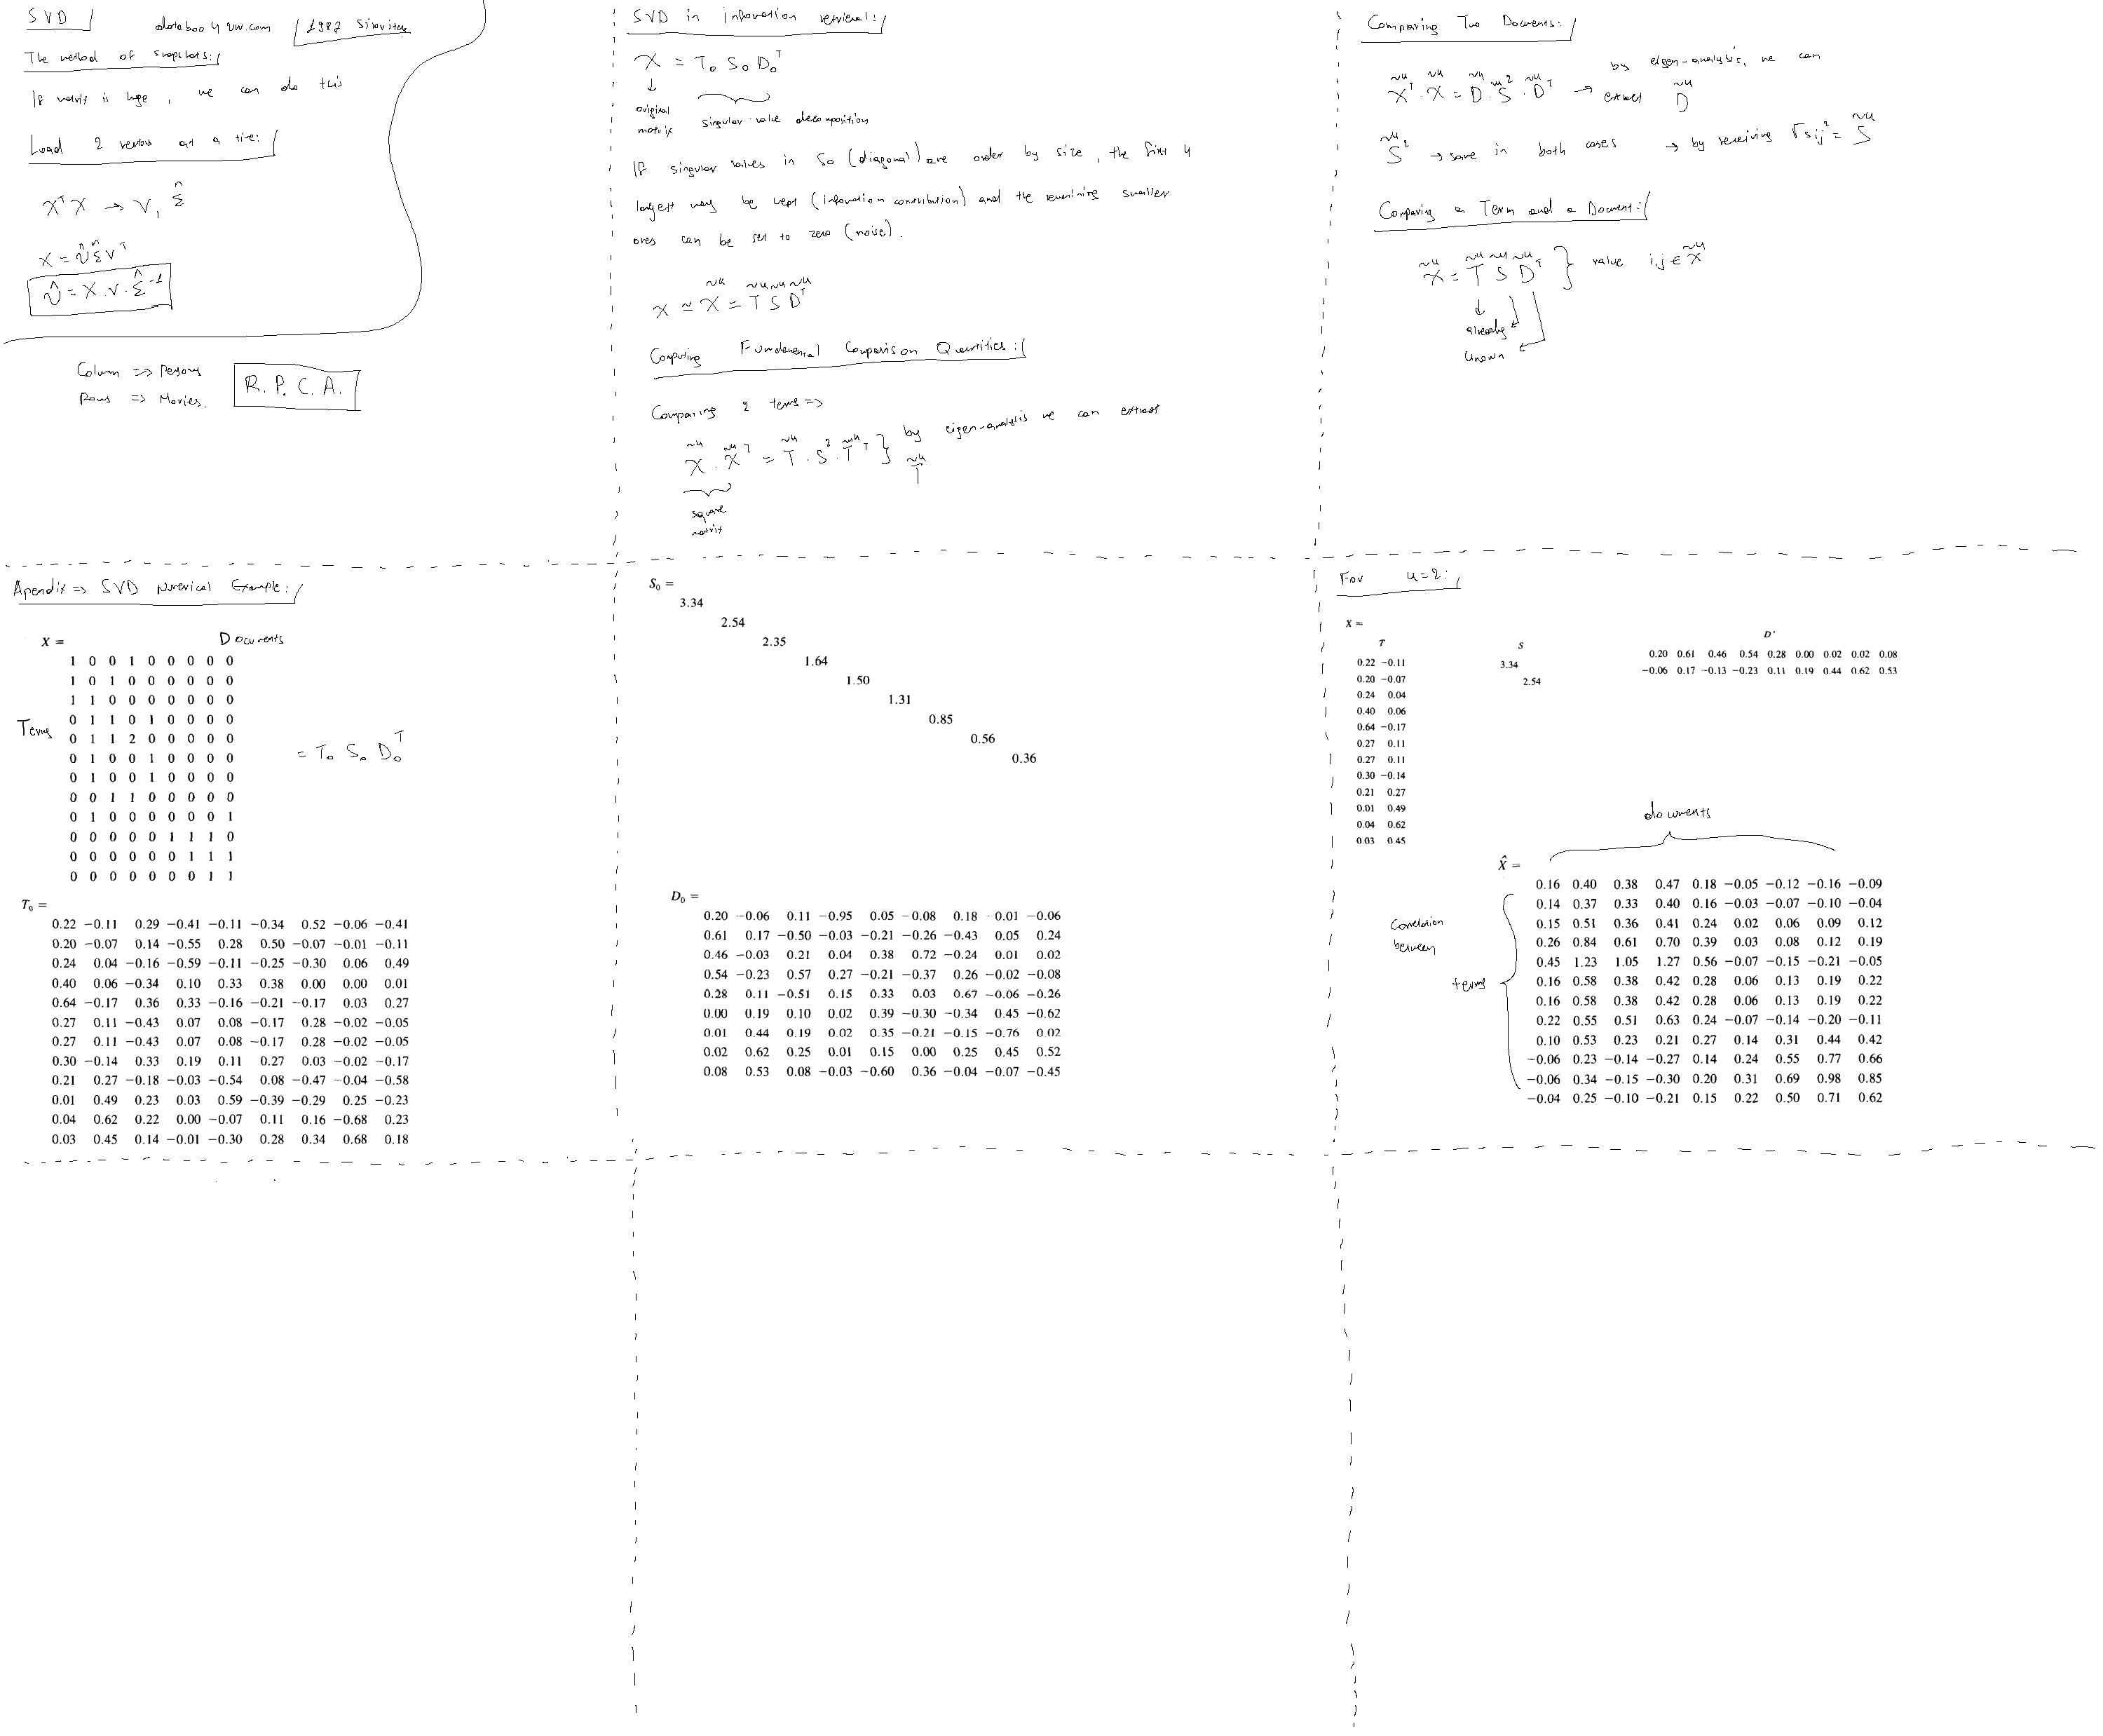 SVD
databookuw.com
1987 Sirovitch
The method of snapshots:
If matrix is huge, we can do this
Load 2 vectors at a time:
X^T X → V, Σ̂
X = Û Σ̂ V^T
Û = X . V . Σ̂^-1
Column => Persons
Rows => Movies.
R.P.C.A.
SVD in information retrieval:
X = T₀ S₀ D₀^T
original
matrix
singular value decomposition
If singular values in S₀ (diagonal) are order by size, the first k
largest may be kept (information contribution) and the remaining smaller
ones can be set to zero (noise).
X ≃ X̃ = T̃ S̃ D̃^T
Computing Fundamental Comparison Quantities:
Comparing 2 terms =>
X̃ . X̃^T = T̃ . S^2 . T̃^T } by eigen-analysis we can extract
T̃
square
matrix
Comparing Two Documents:
X̃^T . X̃ = D̃ . S̃^2 . D̃^T → by eigen-analysis, we can
extract D̃
S̃^2 → same in both cases → by receiving √sij^2 = S̃
Comparing a Term and a Document:
X̃ = T̃ S̃ D̃^T } value i,j ∈ X̃
already
known
Apendix => SVD Numerical Example:
X = Documents
1 0 0 1 0 0 0 0 0
1 0 1 0 0 0 0 0 0
1 1 0 0 0 0 0 0 0
Terms
0 1 1 0 1 0 0 0 0
0 1 1 2 0 0 0 0 0
0 1 0 0 1 0 0 0 0
0 1 0 0 1 0 0 0 0
0 0 1 1 0 0 0 0 0
0 1 0 0 0 0 0 0 1
0 0 0 0 0 1 1 1 0
0 0 0 0 0 0 1 1 1
0 0 0 0 0 0 0 1 1
= T₀ S₀ D₀^T
T₀ =
0.22 −0.11 0.29 −0.41 −0.11 −0.34 0.52 −0.06 −0.41
0.20 −0.07 0.14 −0.55 0.28 0.50 −0.07 −0.01 −0.11
0.24 0.04 −0.16 −0.59 −0.11 −0.25 −0.30 0.06 0.49
0.40 0.06 −0.34 0.10 0.33 0.38 0.00 0.00 0.01
0.64 −0.17 0.36 0.33 −0.16 −0.21 −0.17 0.03 0.27
0.27 0.11 −0.43 0.07 0.08 −0.17 0.28 −0.02 −0.05
0.27 0.11 −0.43 0.07 0.08 −0.17 0.28 −0.02 −0.05
0.30 −0.14 0.33 0.19 0.11 0.27 0.03 −0.02 −0.17
0.21 0.27 −0.18 −0.03 −0.54 0.08 −0.47 −0.04 −0.58
0.01 0.49 0.23 0.03 0.59 −0.39 −0.29 0.25 −0.23
0.04 0.62 0.22 0.00 −0.07 0.11 0.16 −0.68 0.23
0.03 0.45 0.14 −0.01 −0.30 0.28 0.34 0.68 0.18
S₀ =
3.34
2.54
2.35
1.64
1.50
1.31
0.85
0.56
0.36
D₀ =
0.20 −0.06 0.11 −0.95 0.05 −0.08 0.18 −0.01 −0.06
0.61 0.17 −0.50 −0.03 −0.21 −0.26 −0.43 0.05 0.24
0.46 −0.03 0.21 0.04 0.38 0.72 −0.24 0.01 0.02
0.54 −0.23 0.57 0.27 −0.21 −0.37 0.26 −0.02 −0.08
0.28 0.11 −0.51 0.15 0.33 0.03 0.67 −0.06 −0.26
0.00 0.19 0.10 0.02 0.39 −0.30 −0.34 0.45 −0.62
0.01 0.44 0.19 0.02 0.35 −0.21 −0.15 −0.76 0.02
0.02 0.62 0.25 0.01 0.15 0.00 0.25 0.45 0.52
0.08 0.53 0.08 −0.03 −0.60 0.36 −0.04 −0.07 −0.45
For k=2:
X =
T
0.22 −0.11
0.20 −0.07
0.24 0.04
0.40 0.06
0.64 −0.17
0.27 0.11
0.27 0.11
0.30 −0.14
0.21 0.27
0.01 0.49
0.04 0.62
0.03 0.45
S
3.34
2.54
D'
0.20 0.61 0.46 0.54 0.28 0.00 0.02 0.02 0.08
−0.06 0.17 −0.13 −0.23 0.11 0.19 0.44 0.62 0.53
documents
X̂ =
Correlation
between
terms
0.16 0.40 0.38 0.47 0.18 −0.05 −0.12 −0.16 −0.09
0.14 0.37 0.33 0.40 0.16 −0.03 −0.07 −0.10 −0.04
0.15 0.51 0.36 0.41 0.24 0.02 0.06 0.09 0.12
0.26 0.84 0.61 0.70 0.39 0.03 0.08 0.12 0.19
0.45 1.23 1.05 1.27 0.56 −0.07 −0.15 −0.21 −0.05
0.16 0.58 0.38 0.42 0.28 0.06 0.13 0.19 0.22
0.16 0.58 0.38 0.42 0.28 0.06 0.13 0.19 0.22
0.22 0.55 0.51 0.63 0.24 −0.07 −0.14 −0.20 −0.11
0.10 0.53 0.23 0.21 0.27 0.14 0.31 0.44 0.42
−0.06 0.23 −0.14 −0.27 0.14 0.24 0.55 0.77 0.66
−0.06 0.34 −0.15 −0.30 0.20 0.31 0.69 0.98 0.85
−0.04 0.25 −0.10 −0.21 0.15 0.22 0.50 0.71 0.62